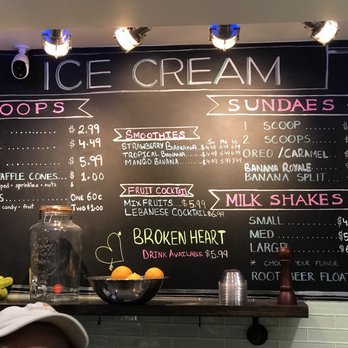 ICE CREAM
OOPS
$2.99
$4.49
$5.99
AFFLE CONES... 1.00
sprinkles • nuts
One 60¢
candy • fruit Two $1.00
SMOOTHIES
STRAWBERRY BANANA
TROPICAL BANANA
MANGO BANANA
FRUIT COCKTAIL
MIX FRUITS $5.99
LEBANESE COCKTAIL $6.99
BROKEN HEART
DRINK AVAILABLE $5.99
SUNDAES
1 SCOOP
2 SCOOPS
OREO/CARAMEL
BANANA ROYALE
BANANA SPLIT
MILK SHAKES
SMALL
MED
LARGE
* CHOOSE YOUR FLAVOR
ROOT BEER FLOAT